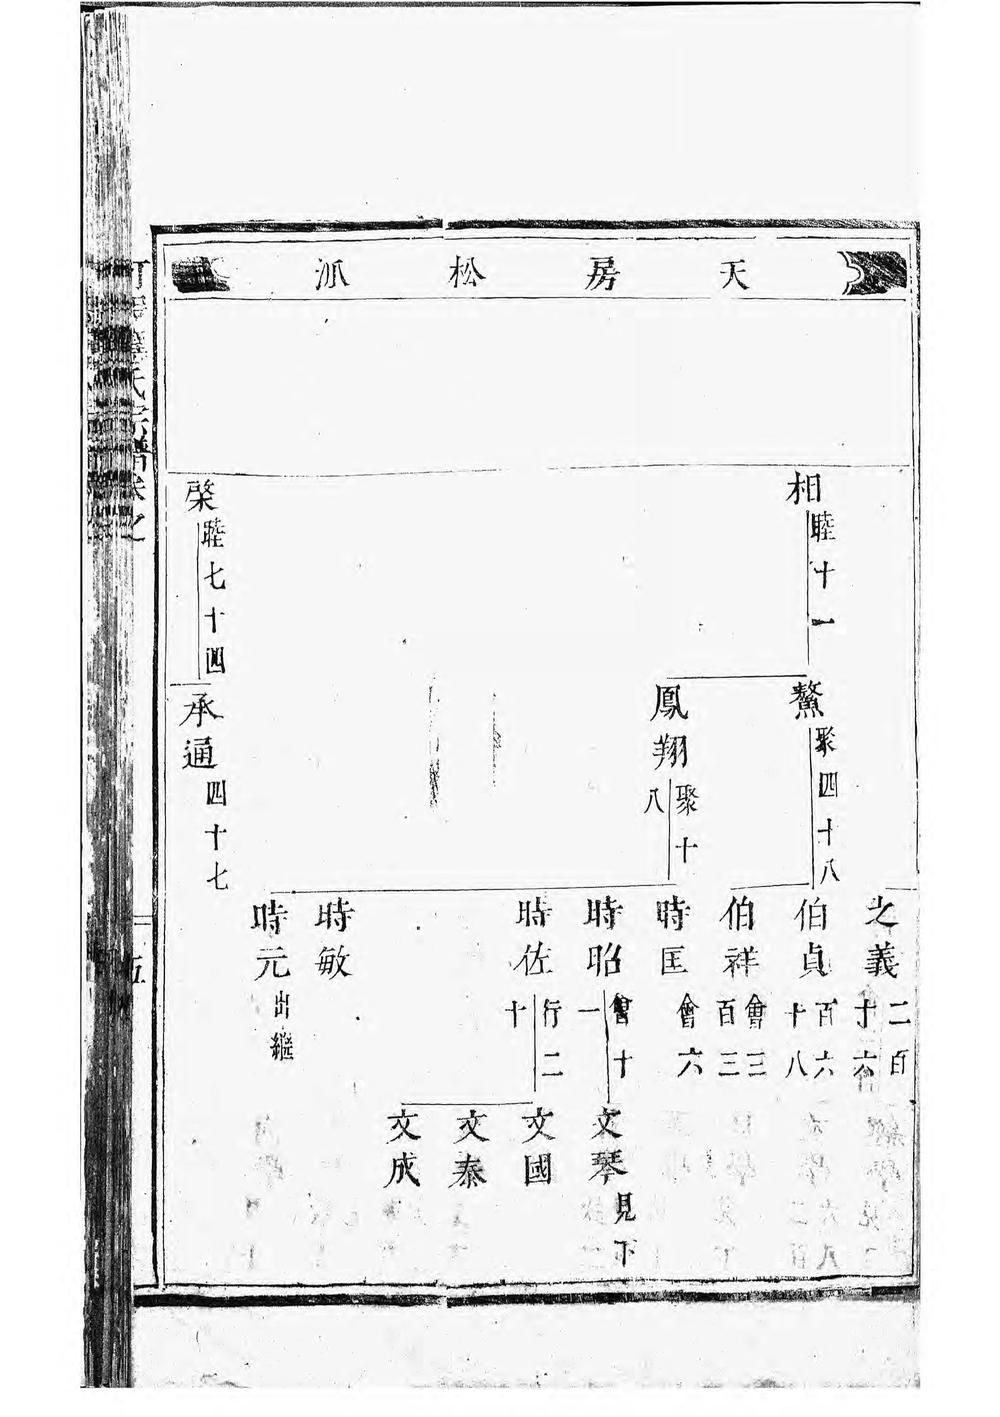 天房松派
相 睦十一
鰲 聚四十八
之義 二百十六
伯貞 百六十八
伯祥 會三百三
鳳翔 聚十八
時匡 會六
時昭 會十一
文琴 見下
時佐 行二十
文國
文泰
文成
時敏
時元 出繼
棨 睦七十四
承通 四十七
氏宗譜卷之
五